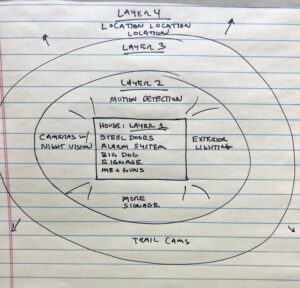 LAYER 4
LOCATION LOCATION
LOCATION
LAYER 3
LAYER 2
MOTION DETECTION
HOUSE: LAYER 1
STEEL DOORS
ALARM SYSTEM
BIG DOG
SIGNAGE
ME + GUNS
CAMERAS W/
NIGHT VISION
EXTERIOR
LIGHTING
MORE
SIGNAGE
TRAIL CAMS